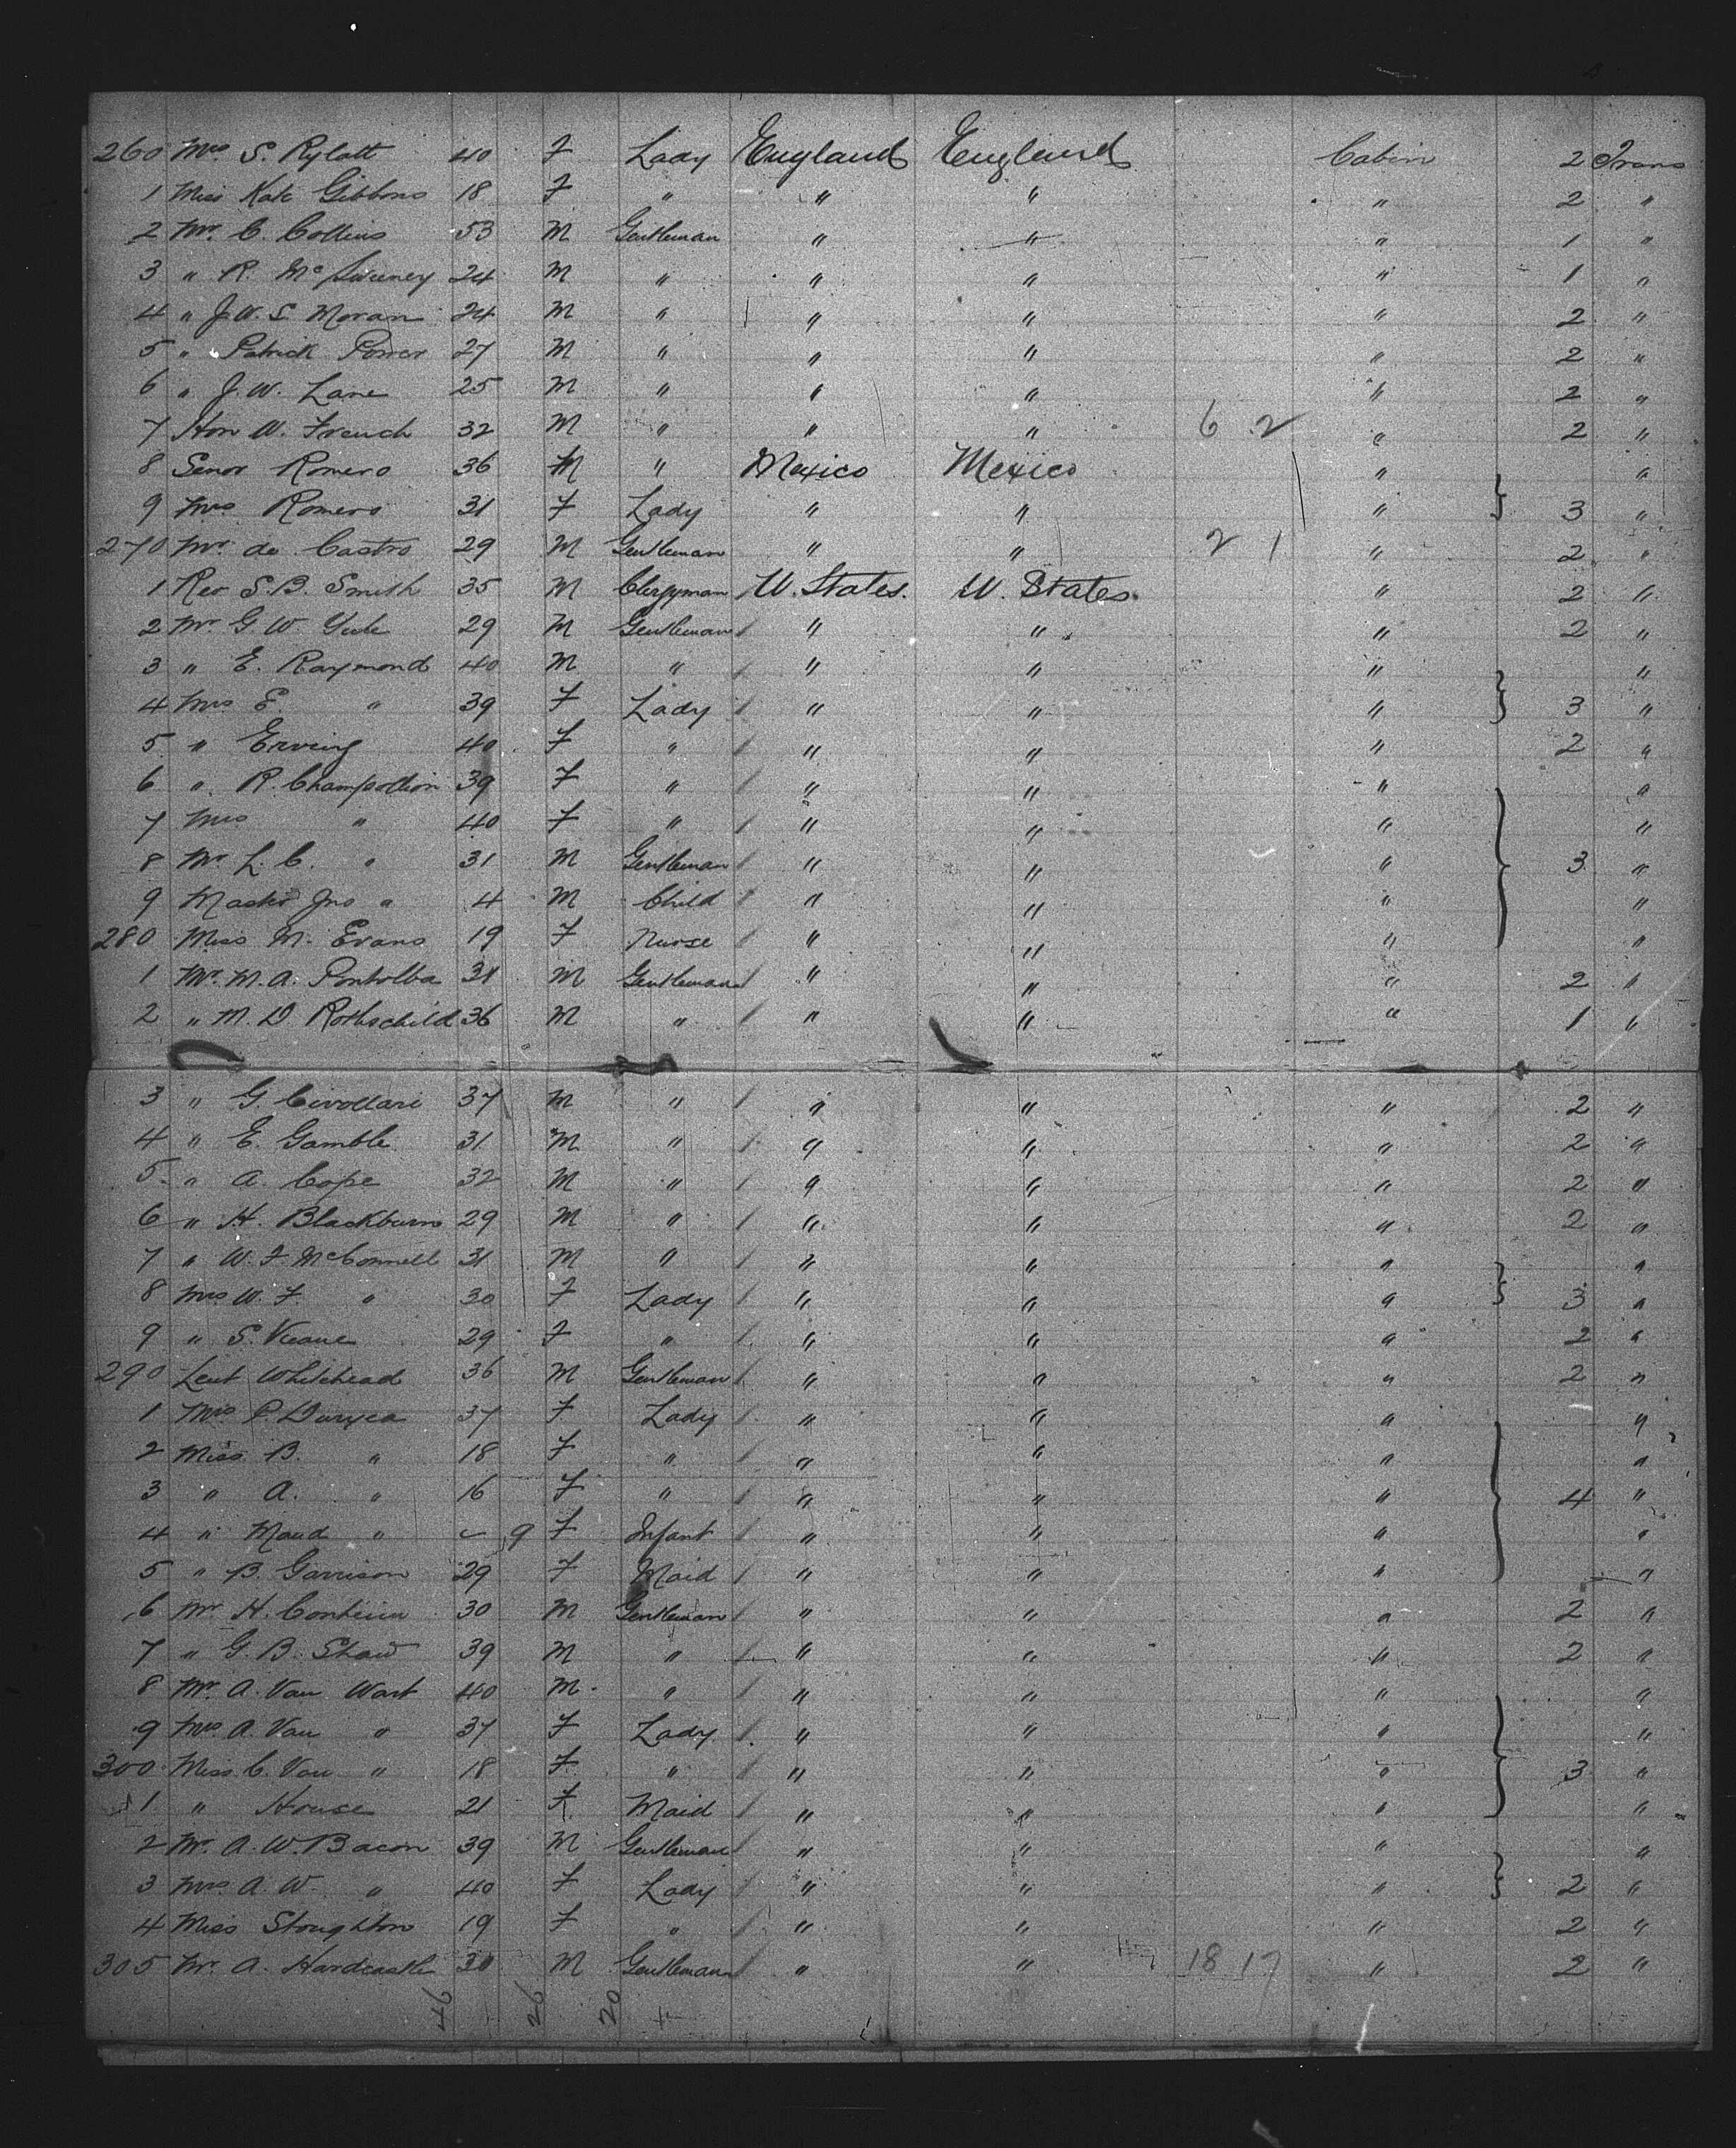 260 Mrs S. Rylatt 40 F Lady England England Cabin 2 Trans
1 Miss Kate Gibbons 18 F " " " " 2 "
2 Mr. C. Collins 53 M Gentleman " " " 1 "
3 " R. McSweeney 24 M " " " " 1 "
4 " J.W.S. Moran 24 M " " " " 2 "
5 " Patrick Power 27 M " " " " 2 "
6 " J.W. Lane 25 M " " " " 2 "
7 Hon W. French 32 M " " " 6 2 " 2 "
8 Senor Romero 36 M " Mexico Mexico " "
9 Mrs Romero 31 F Lady " " " 3 "
270 Mr. de Castro 29 M Gentleman " " 2 1 " 2 "
1 Rev S.B. Smith 35 M Clergyman U. States. U. States. " 2 "
2 Mr G W 29 M Gentleman " " " 2 "
3 " E. Raymond 40 M " " " " "
4 Mrs E. " 39 F Lady " " " 3 "
5 " Erving 40 F " " " " 2 "
6 " R. Champollion 39 F " " " " "
7 Mrs " 40 F " " " " "
8 Mr L. C. " 31 M Gentleman " " " 3 "
9 Master Jno " 4 M Child " " " "
280 Miss M. Evans 19 F Nurse " " " "
1 Mr. M.A. Pontolba 31 M Gentleman " " " 2 "
2 " M. D Rothschild 36 M " " " " 1 "
3 " G. Civollari 37 M " " " " 2 "
4 " E. Gamble 31 M " " " " 2 "
5 " A. Cope 32 M " " " " 2 "
6 " H. Blackburn 29 M " " " " 2 "
7 " W. F. McConnell 31 M " " " " "
8 Mrs W. F. " 30 F Lady " " " 3 "
9 " S. 29 F " " " " 2 "
290 Leut Whitehead 36 M Gentleman " " " 2 "
1 Mrs P Duryea 37 F Lady " " " "
2 Miss B. " 18 F " " " " "
3 " A. " 16 F " " " " 4 "
4 " Maud " 9 F Infant " " " "
5 " B. Garrison 29 F Maid " " " "
6 Mr H. 30 M Gentleman " " " 2 "
7 " G. B. Shaw 39 M " " " " 2 "
8 Mr. A. Van Wart 40 M " " " " "
9 Mrs A. Van " 37 F Lady " " " "
300 Miss C. Van " 18 F " " " " 3 "
1 " House 21 F Maid " " " "
2 Mr. A. W. Bacon 39 M Gentleman " " " "
3 Mrs A. W. " 40 F Lady " " " 2 "
4 Miss Stoughton 19 F " " " " 2 "
305 Mr. A. Hardcastle 30 M Gentleman " " 18 17 " 2 "
46 26 20